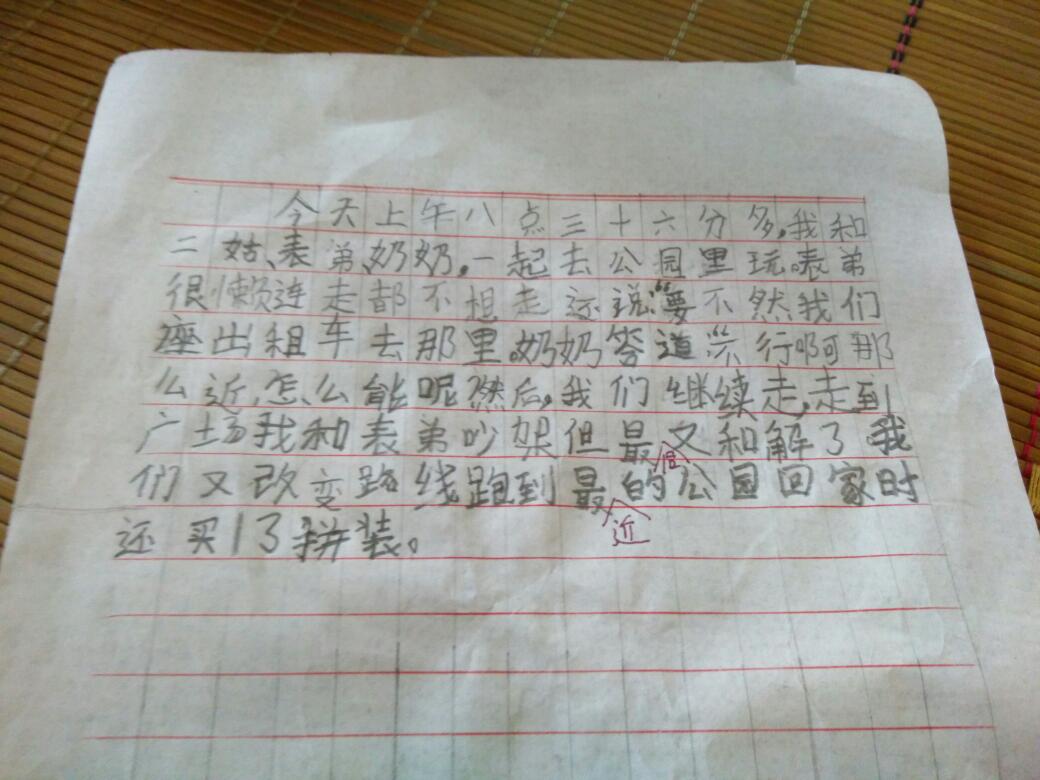 今天上午八点三十六分多,我和
二姑、表弟、奶奶,一起去公园里玩。表弟
很懒连走都不想走还说:“要不然我们
座出租车去那里。奶奶答道:“不行啊那
么近,怎么能呢然后,我们继续走,走到
广场我和表弟吵架但最后又和解了我
们又改变路线跑到最近的公园回家时
还买了拼装。